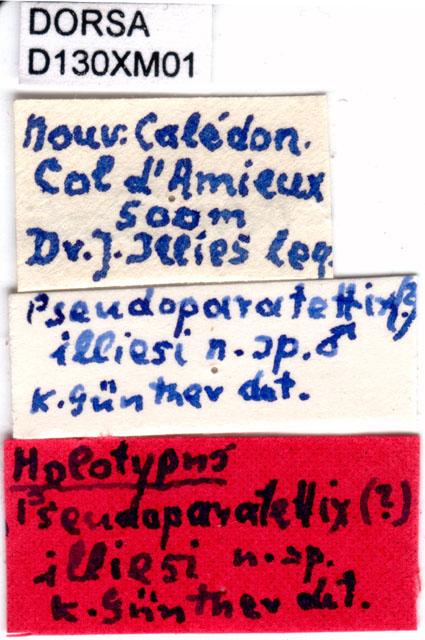 DORSA
D130XM01
Nouv. Calédon.
Col d'Amieux
500m
Dr. J. Illies leg.
Pseudoparatettix(?)
illiesi n. sp. ♂
K. Günther det.
Holotypus
Pseudoparatettix (?)
illiesi n. sp.
K. Günther det.